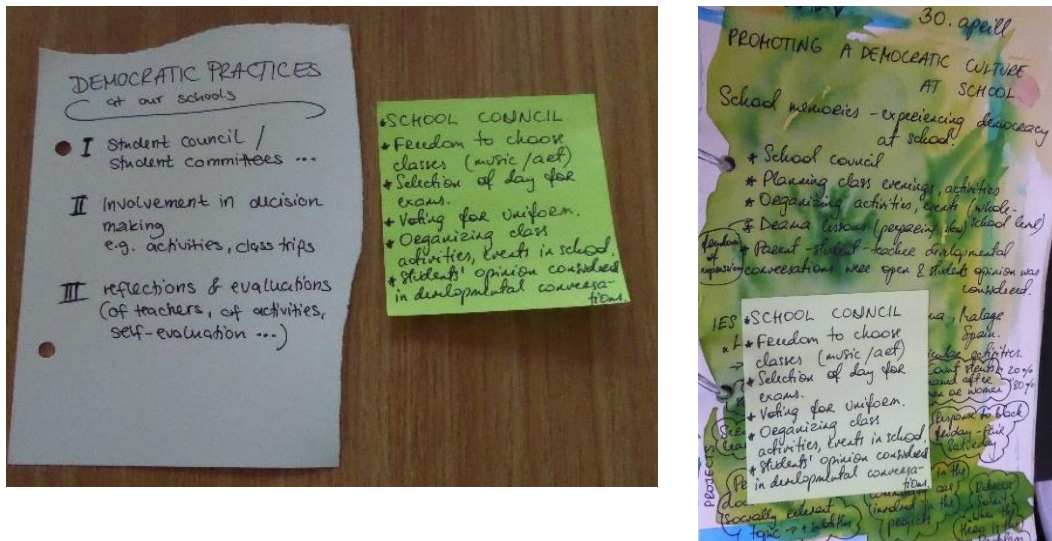 DEMOCRATIC PRACTICES
at our schools
I Student council /
student committees ...
II Involvement in decision
making
e.g. activities, class trips
III reflections & evaluations
(of teachers, of activities,
self-evaluation ...)
* SCHOOL COUNCIL
* Freedom to choose
classes (music/art)
* Selection of day for
exams.
* Voting for uniform.
* Organizing class
activities, events in school.
* Students' opinion considered
in developmental conversa-
tions.
30. aprill
PROMOTING A DEMOCRATIC CULTURE
AT SCHOOL
School memories - experiencing democracy
at school.
* School council
* Planning class evenings, activities
* Organizing activities, events (whole-
school level)
* Drama lessons (preparing
freedom
of
expression
* Parent-student-teacher developmental
conversations were open & students opinion was
considered.
IES
Malaga
Spain.
* SCHOOL COUNCIL
* Freedom to choose
classes (music/art)
* Selection of day for
exams.
* Voting for uniform.
* Organizing class
activities, events in school.
* Students' opinion considered
in developmental conversa-
tions.
activities.
20%
named after
or women 80%
Response to black
friday - Fair
Saturday
PROJECTS:
in the
involved in the
projects
socially relevant
topic →